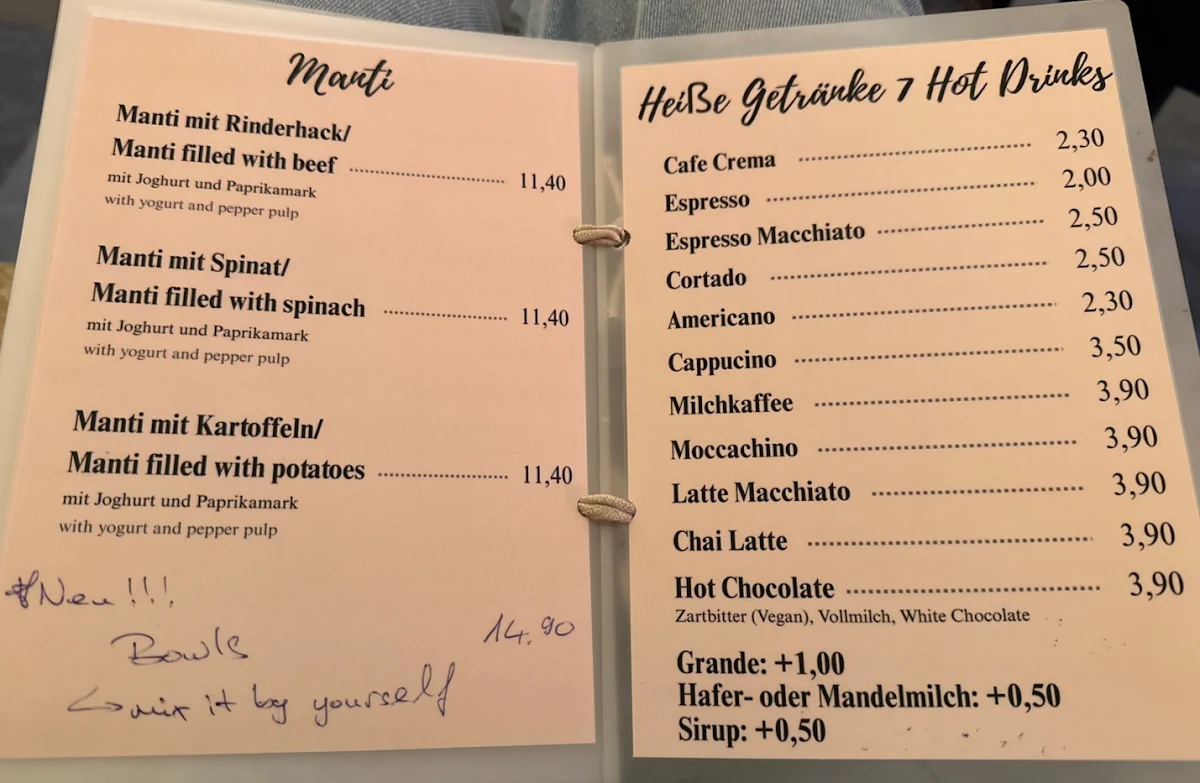 Manti
Manti mit Rinderhack/
Manti filled with beef ........................ 11,40
mit Joghurt und Paprikamark
with yogurt and pepper pulp
Manti mit Spinat/
Manti filled with spinach ........................ 11,40
mit Joghurt und Paprikamark
with yogurt and pepper pulp
Manti mit Kartoffeln/
Manti filled with potatoes ........................ 11,40
mit Joghurt und Paprikamark
with yogurt and pepper pulp
*Neu!!!
Bowls 14.90
↪mix it by yourself
Heiße Getränke 7 Hot Drinks
Cafe Crema ........................ 2,30
Espresso ........................ 2,00
Espresso Macchiato ........................ 2,50
Cortado ........................ 2,50
Americano ........................ 2,30
Cappucino ........................ 3,50
Milchkaffee ........................ 3,90
Moccachino ........................ 3,90
Latte Macchiato ........................ 3,90
Chai Latte ........................ 3,90
Hot Chocolate ........................ 3,90
Zartbitter (Vegan), Vollmilch, White Chocolate
Grande: +1,00
Hafer- oder Mandelmilch: +0,50
Sirup: +0,50